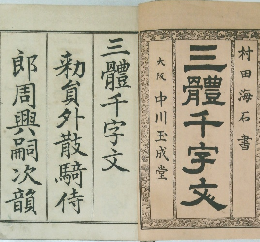 村田海石書
三體千字文
大阪 中川玉成堂
三體千字文
勅員外散騎侍
郎周興嗣次韻